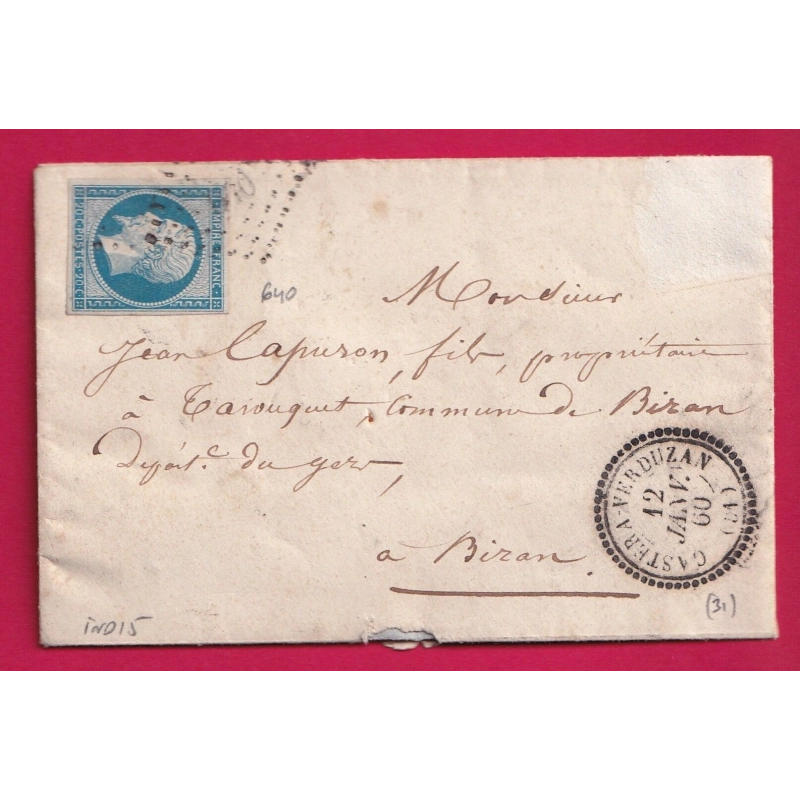 EMPIRE FRANC
20C POSTES 20C
640
Monsieur
Jean Capuron, fils, propriétaire
à Tarouquet, Commune de Biran
Dépárt.e du gers,
à Biran.
CASTERA-VERDUZAN (31)
12
JANV.
60
(31)
IND15